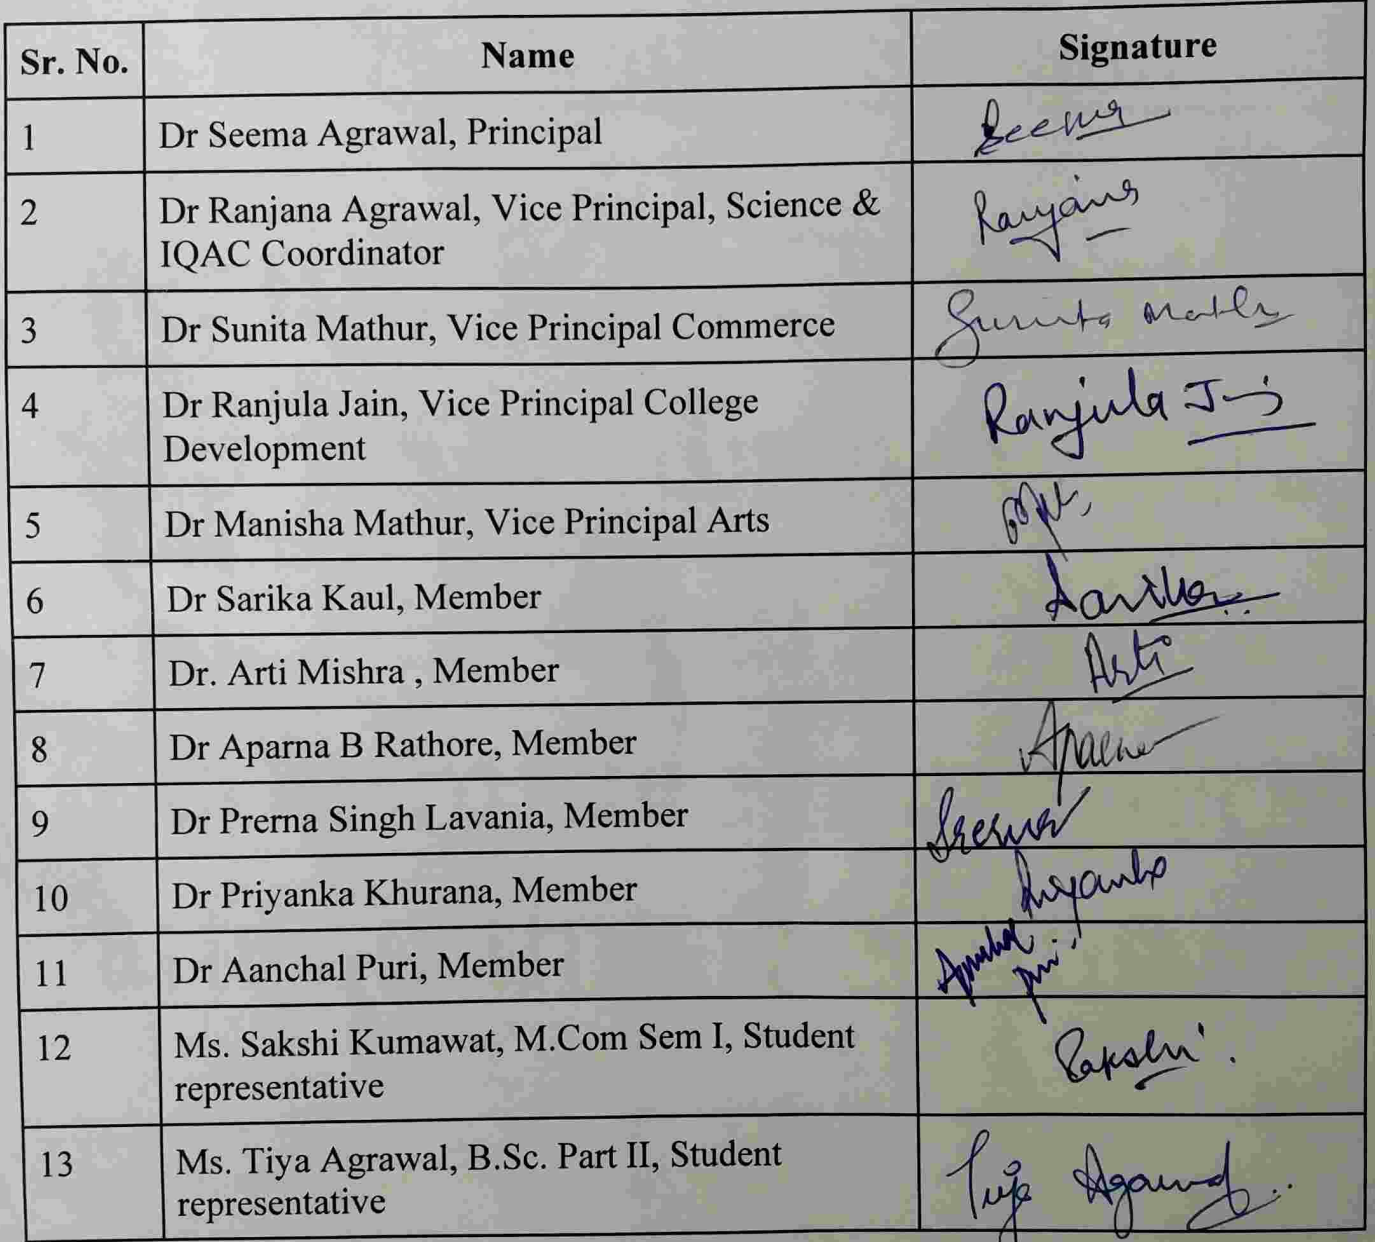 Sr. No. Name Signature
1 Dr Seema Agrawal, Principal Seema
2 Dr Ranjana Agrawal, Vice Principal, Science & Ranjana
IQAC Coordinator
3 Dr Sunita Mathur, Vice Principal Commerce Sunita Mathur
4 Dr Ranjula Jain, Vice Principal College Ranjula Jain
Development
5 Dr Manisha Mathur, Vice Principal Arts
6 Dr Sarika Kaul, Member Sarika
7 Dr. Arti Mishra , Member Arti
8 Dr Aparna B Rathore, Member Aparna
9 Dr Prerna Singh Lavania, Member Prerna
10 Dr Priyanka Khurana, Member Priyanka
11 Dr Aanchal Puri, Member
12 Ms. Sakshi Kumawat, M.Com Sem I, Student Sakshi
representative
13 Ms. Tiya Agrawal, B.Sc. Part II, Student Tiya Agarwal
representative